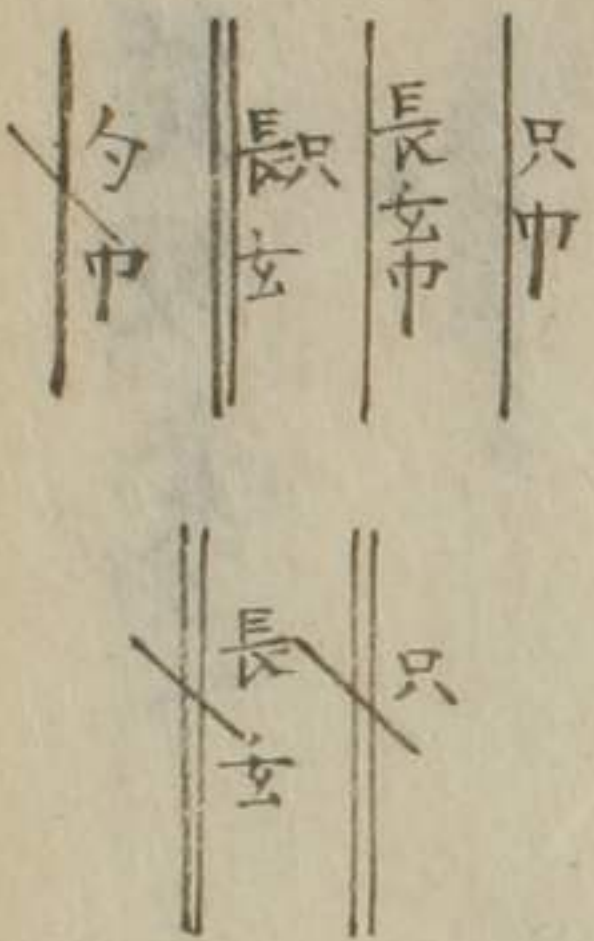 只巾
長玄巾
長只玄
勺巾
只
長玄